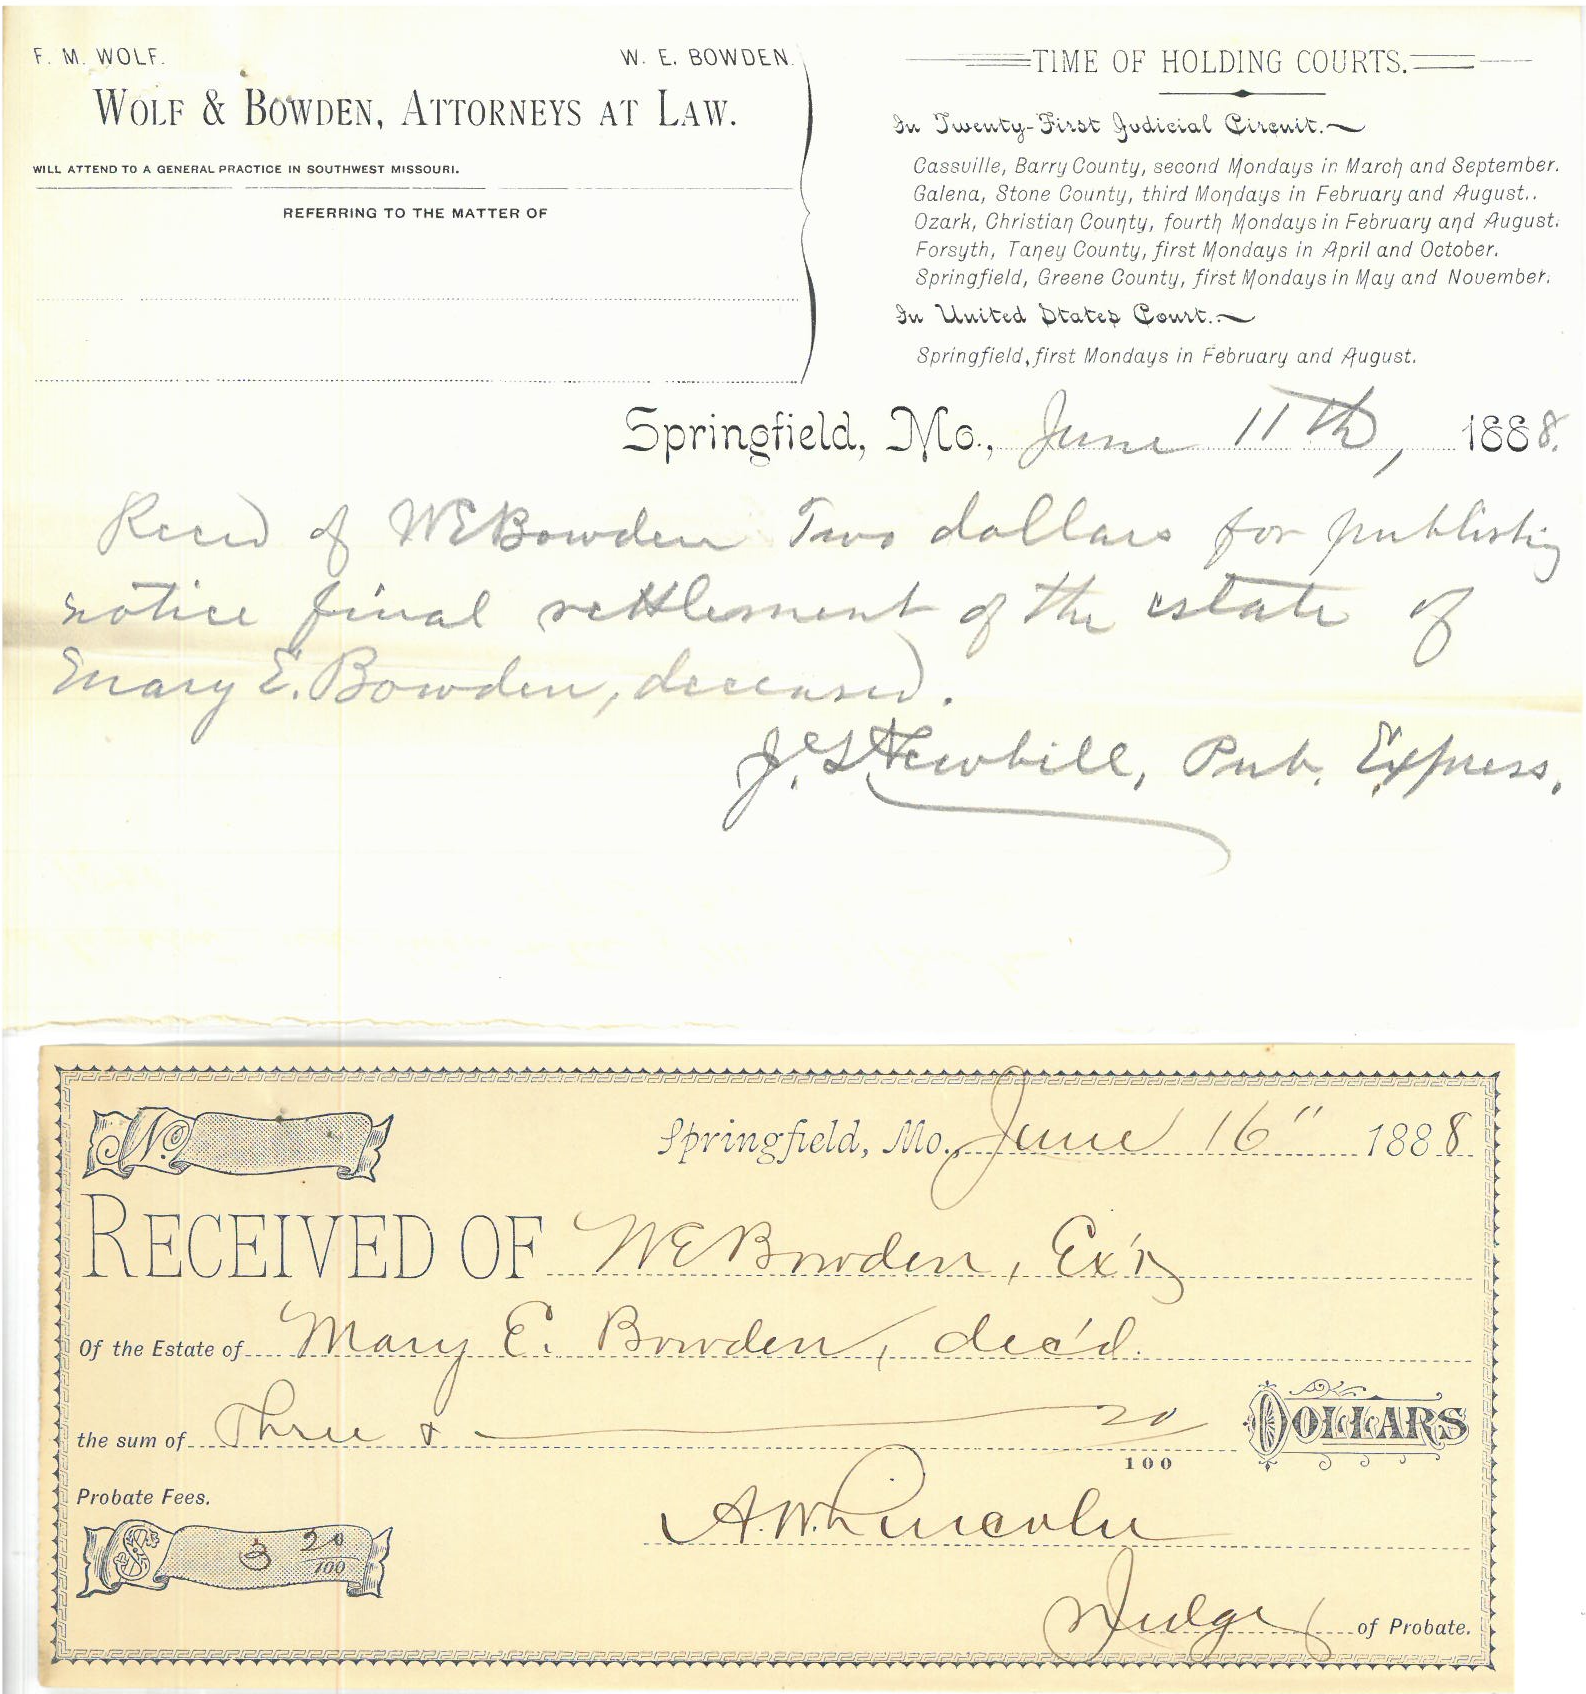 F. M. WOLF. W. E. BOWDEN.
WOLF & BOWDEN, ATTORNEYS AT LAW.
WILL ATTEND TO A GENERAL PRACTICE IN SOUTHWEST MISSOURI.
REFERRING TO THE MATTER OF
TIME OF HOLDING COURTS.
In Twenty-First Judicial Circuit.
Cassville, Barry County, second Mondays in March and September.
Galena, Stone County, third Mondays in February and August..
Ozark, Christian County, fourth Mondays in February and August.
Forsyth, Taney County, first Mondays in April and October.
Springfield, Greene County, first Mondays in May and November.
In United States Court.
Springfield, first Mondays in February and August.
Springfield, Mo., June 11th, 1888.
Recd of WE Bowden Two dollars for publishing
notice final settlement of the estate of
Mary E. Bowden, deceased.
J. S. Newbill, Pub. Express.
No.
Springfield, Mo., June 16" 1888
RECEIVED OF WE Bowden, Ex'r
Of the Estate of Mary E. Bowden, dec'd.
the sum of Three & 20/100 DOLLARS
Probate Fees.
$ 3 20/100
A. W. Lincoln
Judge of Probate.